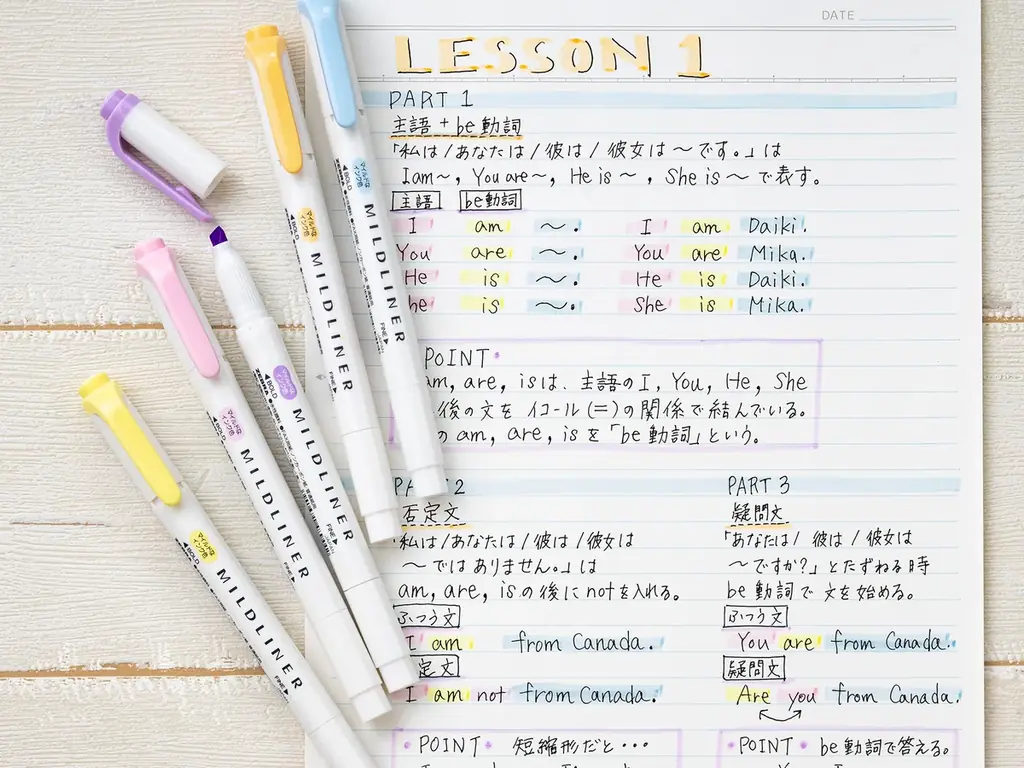 DATE
LESSON 1
PART 1
主語 + be動詞
「私は / あなたは / 彼は / 彼女は 〜です。」は
I am〜, You are〜, He is 〜, She is 〜 で表す。
主語 be動詞
I am 〜. I am Daiki.
You are 〜. You are Mika.
He is 〜. He is Daiki.
he is 〜. She is Mika.
POINT・
am, are, isは、主語のI, You, He, She
後の文を イコール(=)の関係で結んでいる。
の am, are, isを「be動詞」という。
2
否定文
私は / あなたは / 彼は / 彼女は
〜ではありません。」は
am, are, isの後にnotを入れる。
ふつう文
I am from Canada.
定文
I am not from Canada.
・POINT・ 短縮形だと・・・
PART 3
疑問文
「あなたは / 彼は / 彼女は
〜ですか?」とたずねる時
be動詞で文を始める。
ふつう文
You are from Canada.
疑問文
Are you from Canada.
・POINT・ be動詞で答える。
マイルドなインク色
BOLD
MILDLINER
FINE
マイルドなインク色
BOLD
MILDLINER
FINE
マイルドなインク色
BOLD
ZEBRA
MILDLINER
FINE
マイルドなインク色
BOLD
MILDLINER
FINE
マイルドなインク色
BOLD
MILDLINER